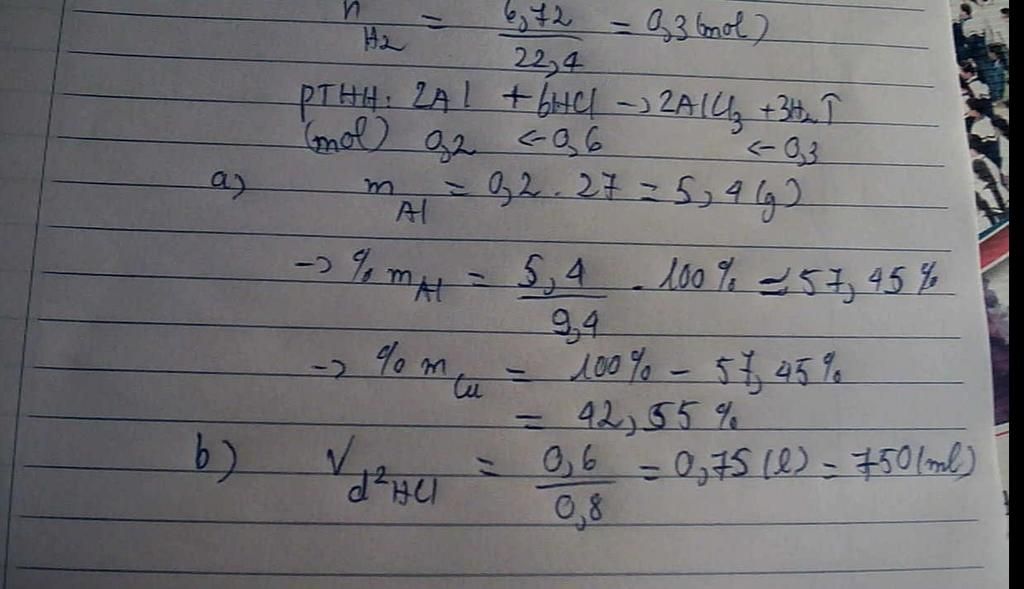 n H2 = 6,72 / 22,4 = 0,3 (mol)
PTHH: 2Al + 6HCl -> 2AlCl3 + 3H2↑
(mol) 0,2 <- 0,6 <- 0,3
a) mAl = 0,2 . 27 = 5,4 (g)
-> % mAl = 5,4 / 9,4 . 100% ≃ 57,45 %
-> % mCu = 100% - 57,45%
= 42,55 %
b) Vd²HCl = 0,6 / 0,8 = 0,75 (l) = 750 (ml)